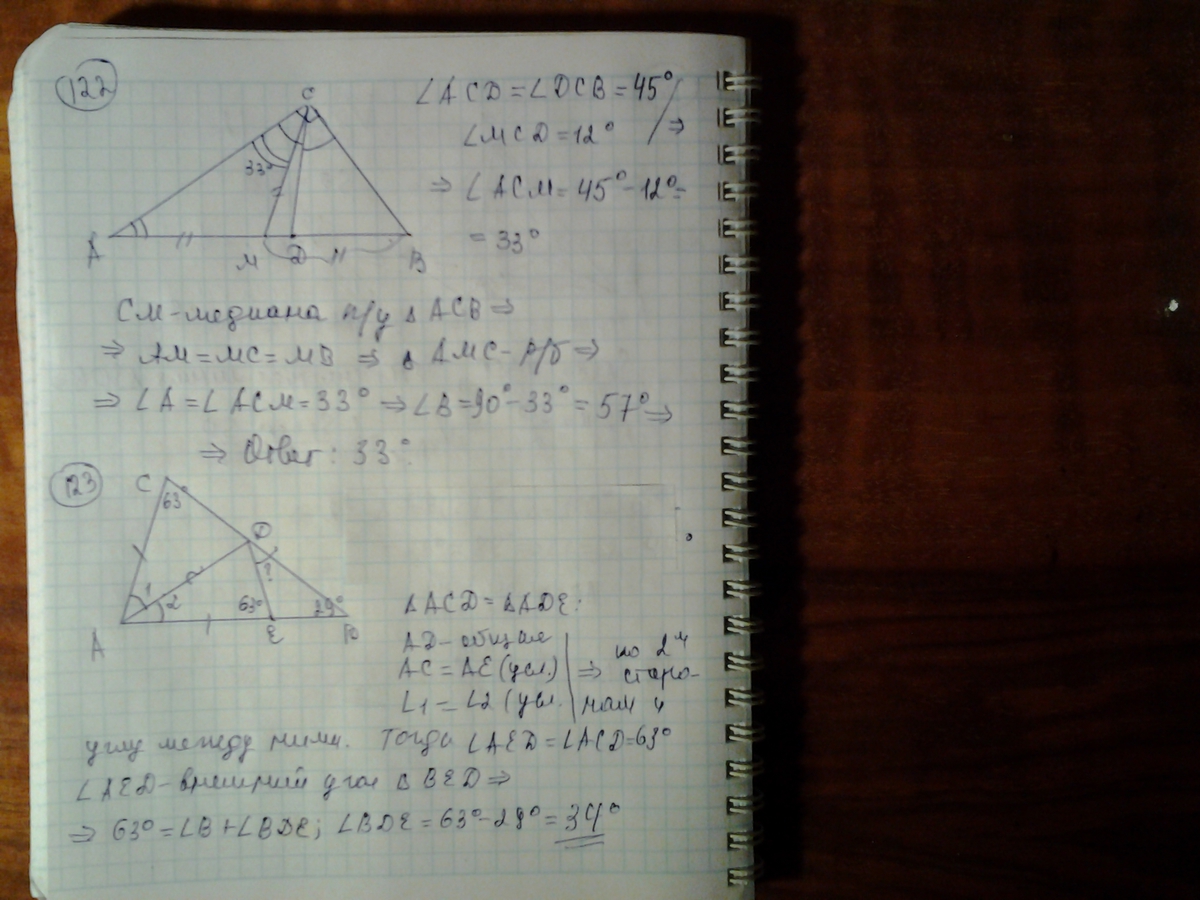 122
∠ACD = ∠DCB = 45°
∠MCD = 12° ⇒
⇒ ∠ACM = 45° - 12° =
= 33°
C
33°
A M D B
CM - медиана п/у Δ ACB ⇒
⇒ AM = MC = MB ⇒ Δ AMC - р/б ⇒
⇒ ∠A = ∠ACM = 33° ⇒ ∠B = 90° - 33° = 57° ⇒
⇒ Ответ: 33°.
123
C
63°
D
?
1
2
63°
29°
A E B
ΔACD = ΔADE:
AD - общая
AC = AE (усл.) ⇒ по 2м сторо-
∠1 = ∠2 (усл. нам и
углу между ними. Тогда ∠AED = ∠ACD = 63°
∠AED - внешний угол Δ BED ⇒
⇒ 63° = ∠B + ∠BDE; ∠BDE = 63° - 29° = 34°